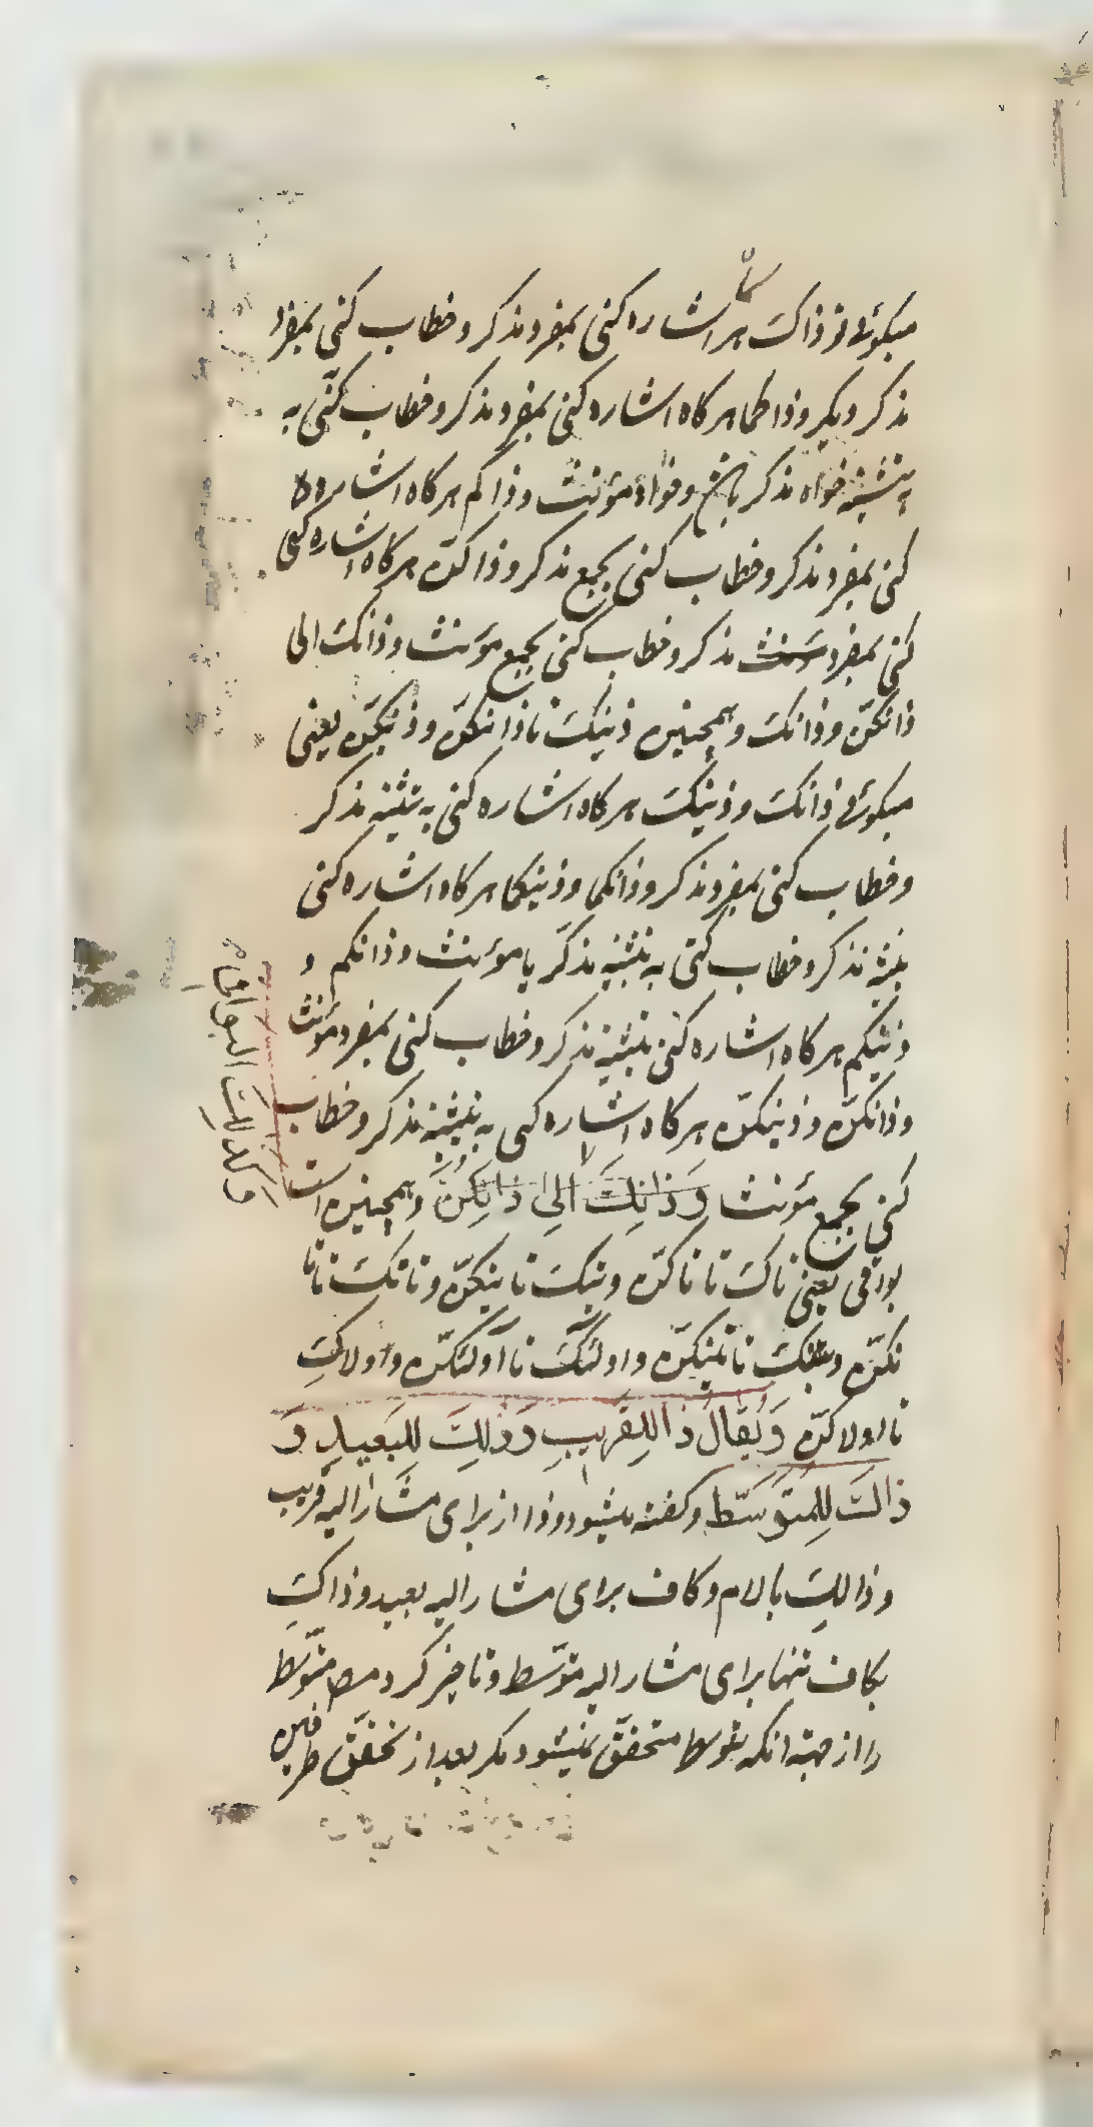 میکوئی ذاک هر اشاره کنی بمفرد مذکر و خطاب کنی بمفرد
مذکر دیکر و ذاکما هر کاه اشاره کنی بمفرد مذکر و خطاب کنی به
تثنیه خواه مذکر باشد و خواه مؤنث و ذاکم هر کاه اشاره
کنی بمفرد مذکر و خطاب کنی بجمع مذکر و ذاکنّ هر کاه اشاره کنی
کنی بمفرد مؤنث مذکر و خطاب کنی بجمع مؤنث و ذانکَ الی
ذانکنّ و ذانک و همچنین ذینکَ تا ذانکنّ و ذینکنّ یعنی
میکوئی ذانکَ و ذینکَ هر کاه اشاره کنی به تثنیه مذکر
و خطاب کنی بمفرد مذکر و ذانکما و ذینکما هر کاه اشاره کنی
بتثنیه مذکر و خطاب کنی به تثنیه مذکر یا مؤنث و ذانکم و
ذینکم هر کاه اشاره کنی بتثنیه مذکر و خطاب کنی بمفرد مؤنث
و ذانکنّ و ذینکنّ هر کاه اشاره کنی به تثنیه مذکر و خطاب
کنی بجمع مؤنث وَ ذانِکَ اِلی ذانِکُنَّ و همچنین است
بواقی یعنی تاکَ تا تاکنّ و تیکَ تا تیکنّ و تانکَ تا تا
نکنّ و تینکَ تا تینکنّ و اولئکَ تا اولئکنّ و اولاکَ
تا اولاکنّ وَ یُقالُ ذا لِلقَریبِ وَ ذٰلِکَ لِلبَعیدِ وَ
ذاکَ لِلمُتَوَسِّط و کفته میشود ذا از برای مشار الیه قریب
و ذالک با لام و کاف برای مشار الیه بعید و ذاکَ
بکاف تنها برای مشار الیه متوسّط و تاخیر کرد مص متوسّط
را از جهة انکه توسط متحقّق نمیشود مکر بعد از تحقّق طرفین
وَ کَذلِکَ البَواقی